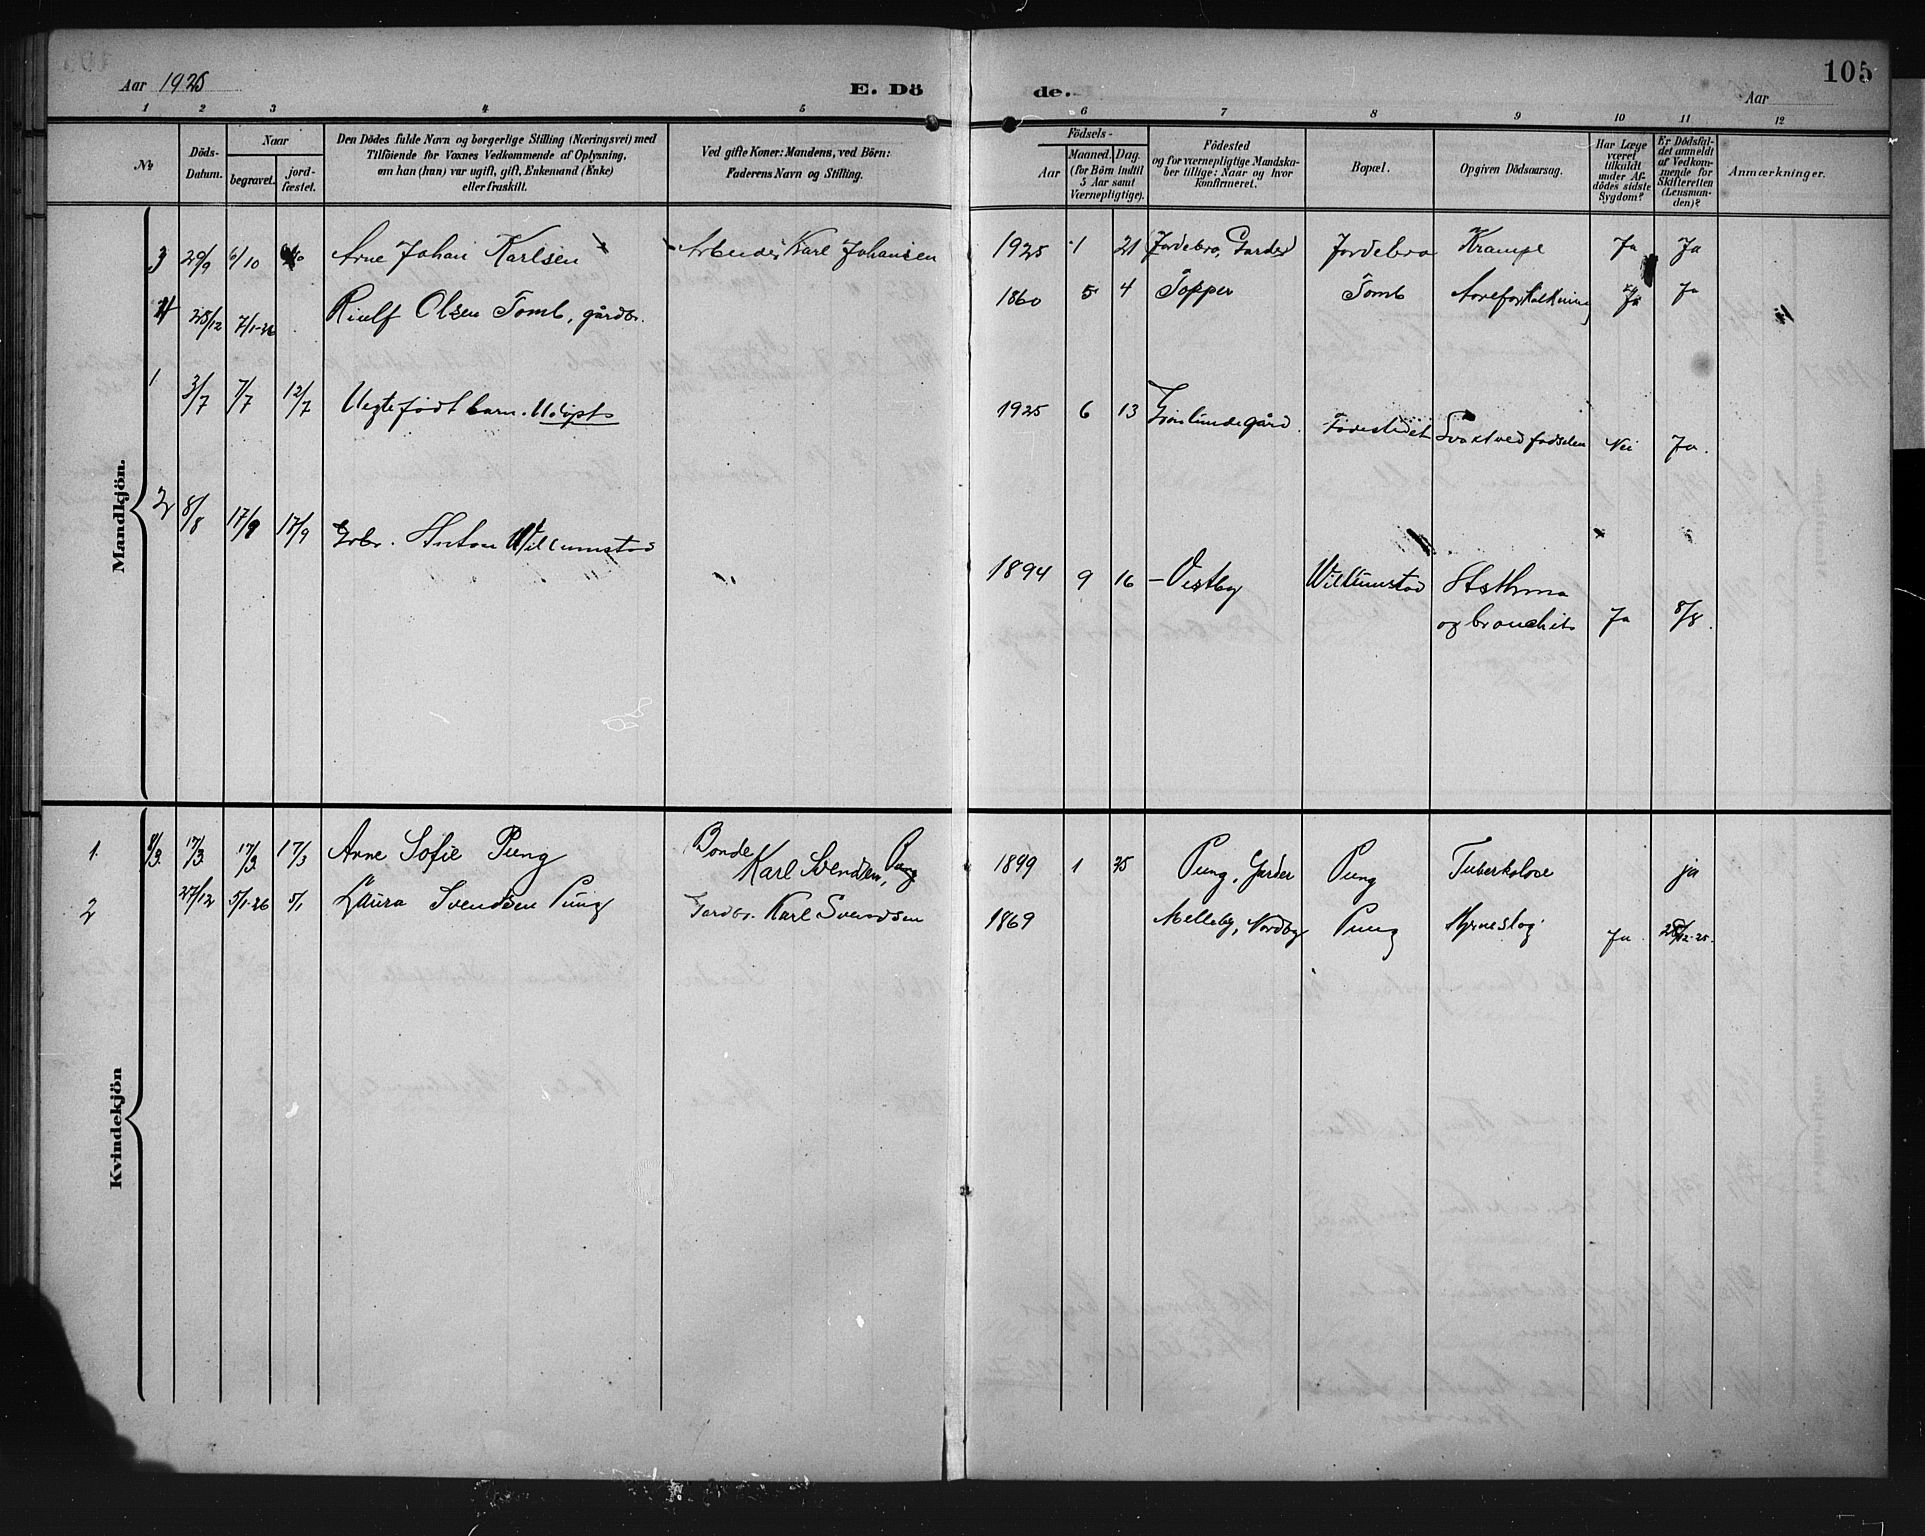 Aar 1925
E. Dö
de.
105
Aar
1 2 3 4 5 6 7 8 9 10 11 12
No
Döds-
Datum.
Naar
begravet.
jord-
fæstet.
Den Dödes fulde Navn og borgerlige Stilling (Næringsvei) med
Tilföiende for Voxnes Vedkommende af Oplysning,
om han (hun) var ugift, gift, Enkemand (Enke)
eller fraskilt.
Ved gifte Koner: Mandens, ved Börn:
Faderens Navn og Stilling.
Födsels-
Aar
Maaned.
Dag.
(for Börn indtil
5 Aar samt
Værnepligtige).
Födested
og for værnepligtige Mandska-
ber tillige: Naar og hvor
konfirmeret.
Bopæl.
Opgiven Dödsaarsag.
Har Læge
været
tilkaldt
under Af-
dödes sidste
Sygdom?
Er Dödsfal-
det anmeldt
af Vedkom-
mende for
Skifteretten
(Lensman-
den)?
Anmærkninger.
Mandkjön.
3 29/9 6/10 Arne Johan Karlsen Karl Johansen 1925 1 21 Jordebro, Garder Jordebro Krampe Ja Ja
4 25/12 7/1-26 Olsen Tomb, gårdbr. 1860 5 4 Topper Tomb Aareforkalkning Ja Ja
1 3/7 7/7 12/7 Uegtefødt barn. Udöpt 1925 6 13 Fødestedet Svakt ved fødselen Nei Ja.
2 8/8 17/9 17/9 Grbr. Anton Willumstad 1894 9 16 – Vestby Willumstad Asthma
og bronchit Ja 8/8.
Kvindekjön
1. 8/3 17/3 17/3 17/3 Arne Sofie Pung Bonde
Karl Svendsen, Pung 1899 1 25 Pung, Garder Pung Tuberkolose ja
2 27/12 5/1-26 5/1 Laura Svendsen Pung Gardbr. Karl Svendsen 1869 Melleby, Nordby Pung Hjerneslag Ja. 28/12-25.